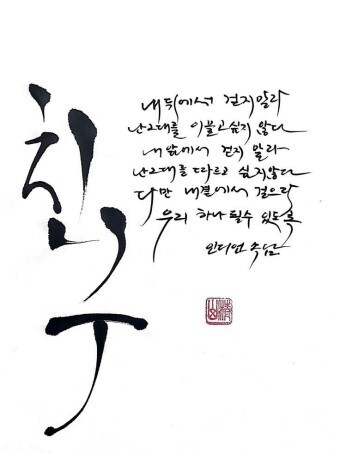 친구
내 뒤에서 걷지 말라
난 그대를 이끌고 싶지 않다
내 앞에서 걷지 말라
난 그대를 따르고 싶지 않다
다만 내 곁에서 걸으라
우리 하나 될 수 있도록
인디언 속담